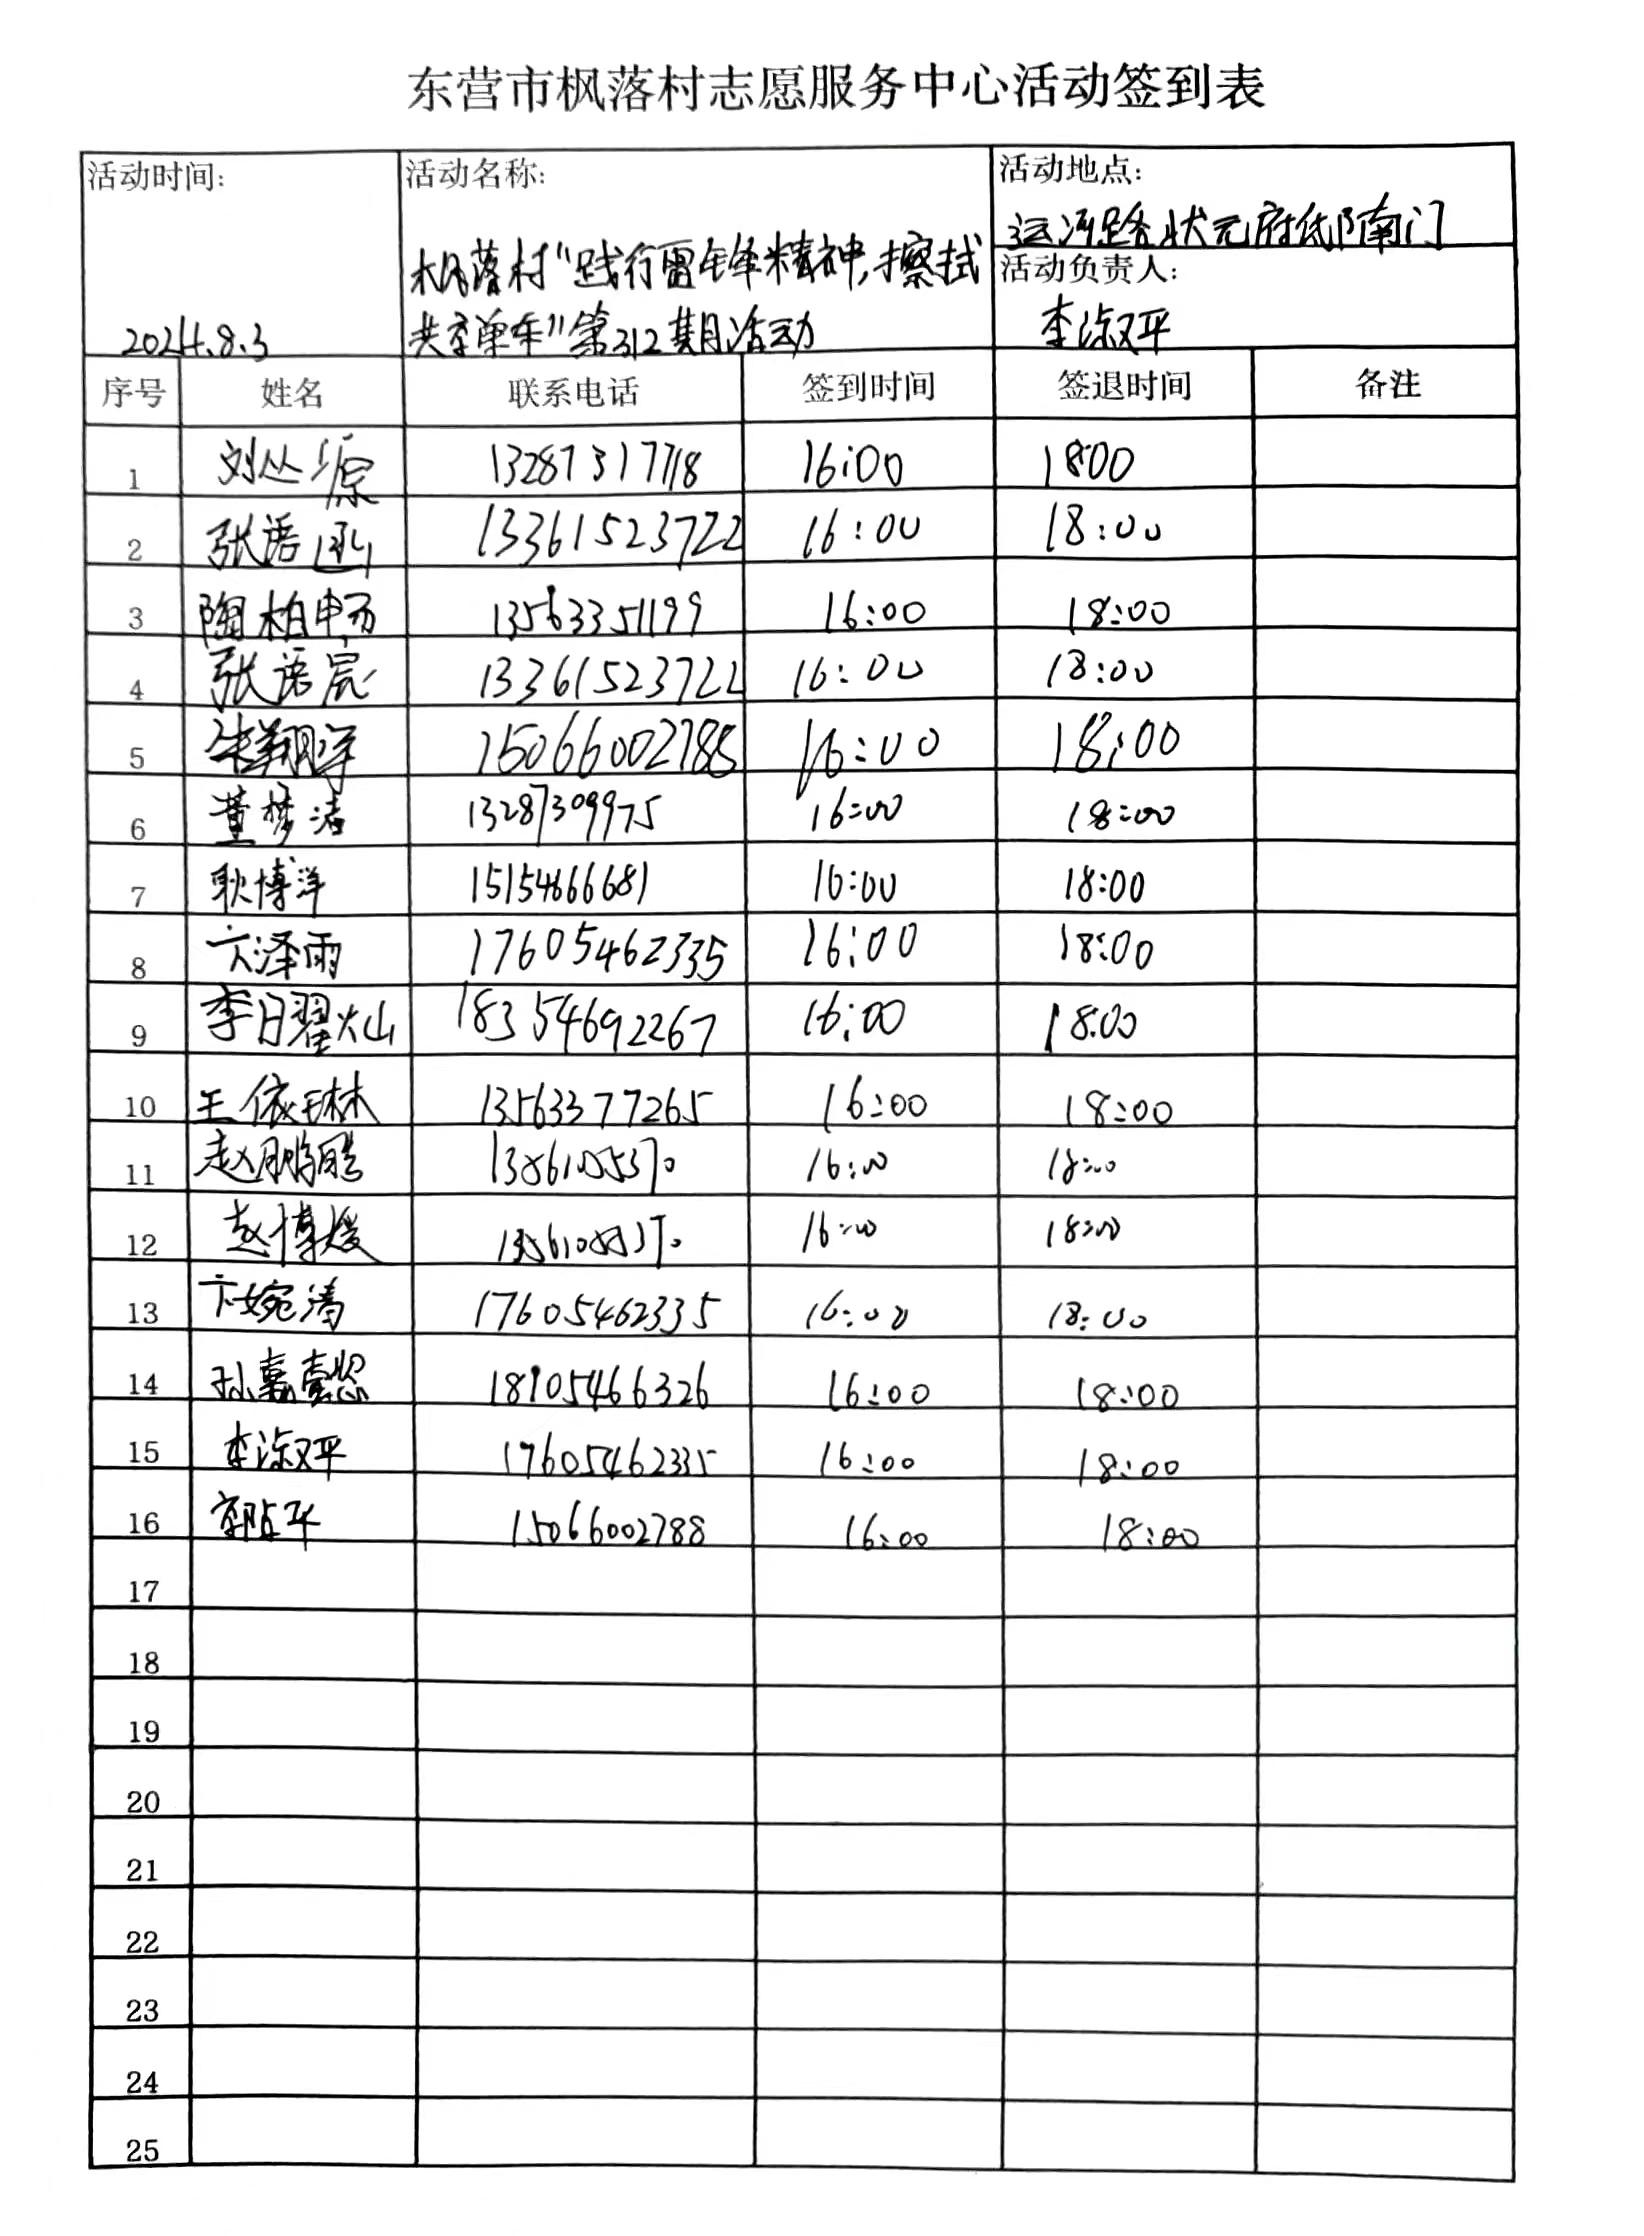 东营市枫落村志愿服务中心活动签到表
活动时间: 活动名称: 活动地点:
运河路状元府邸南门
枫落村"践行雷锋精神,擦拭 活动负责人:
2024.8.3 共享单车"第312期活动 李淑平
序号 姓名 联系电话 签到时间 签退时间 备注
1 刘丛源 13287317718 16:00 18:00
2 张语函 13361523722 16:00 18:00
3 陶柏畅 13563351199 16:00 18:00
4 张语宸 13361523722 16:00 18:00
5 朱翔宇 15066002785 16:00 18:00
6 董梦洁 13287309975 16:00 18:00
7 耿博洋 15154666681 16:00 18:00
8 卞泽雨 17605462335 16:00 18:00
9 李曜灿 18354692267 16:00 18:00
10 王依琳 13563377265 16:00 18:00
11 赵鹏皓 16:00 18:00
12 赵博媛 16:00 18:00
13 卞婉清 17605462335 16:00 18:00
14 孙嘉懿 18905466326 16:00 18:00
15 李淑平 17605462335 16:00 18:00
16 15066002788 16:00 18:00
17
18
19
20
21
22
23
24
25